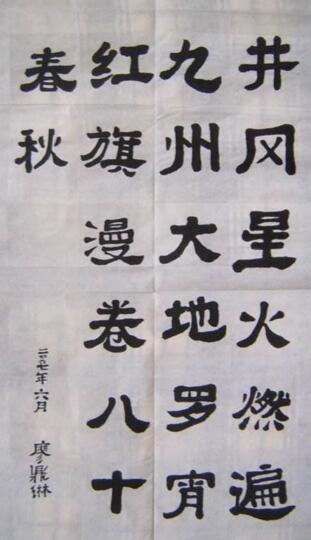 井冈星火燃遍
九州大地罗宵
红旗漫卷八十
春秋
二〇〇七年六月
廖鼎琳